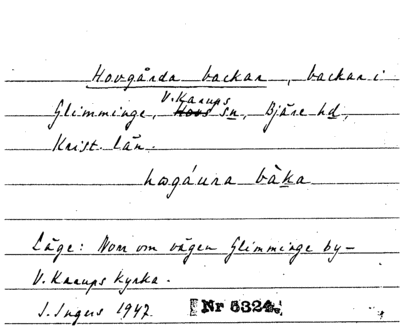 Hovgårda backar, backar i
V. Karups
Glimminge, Hovs sn, Bjäre hd,
Krist. län.
hωgáura bàka
Läge: Norr om vägen Glimminge by-
V. Karups kyrka.
J. Ingers 1947 Nr 6324